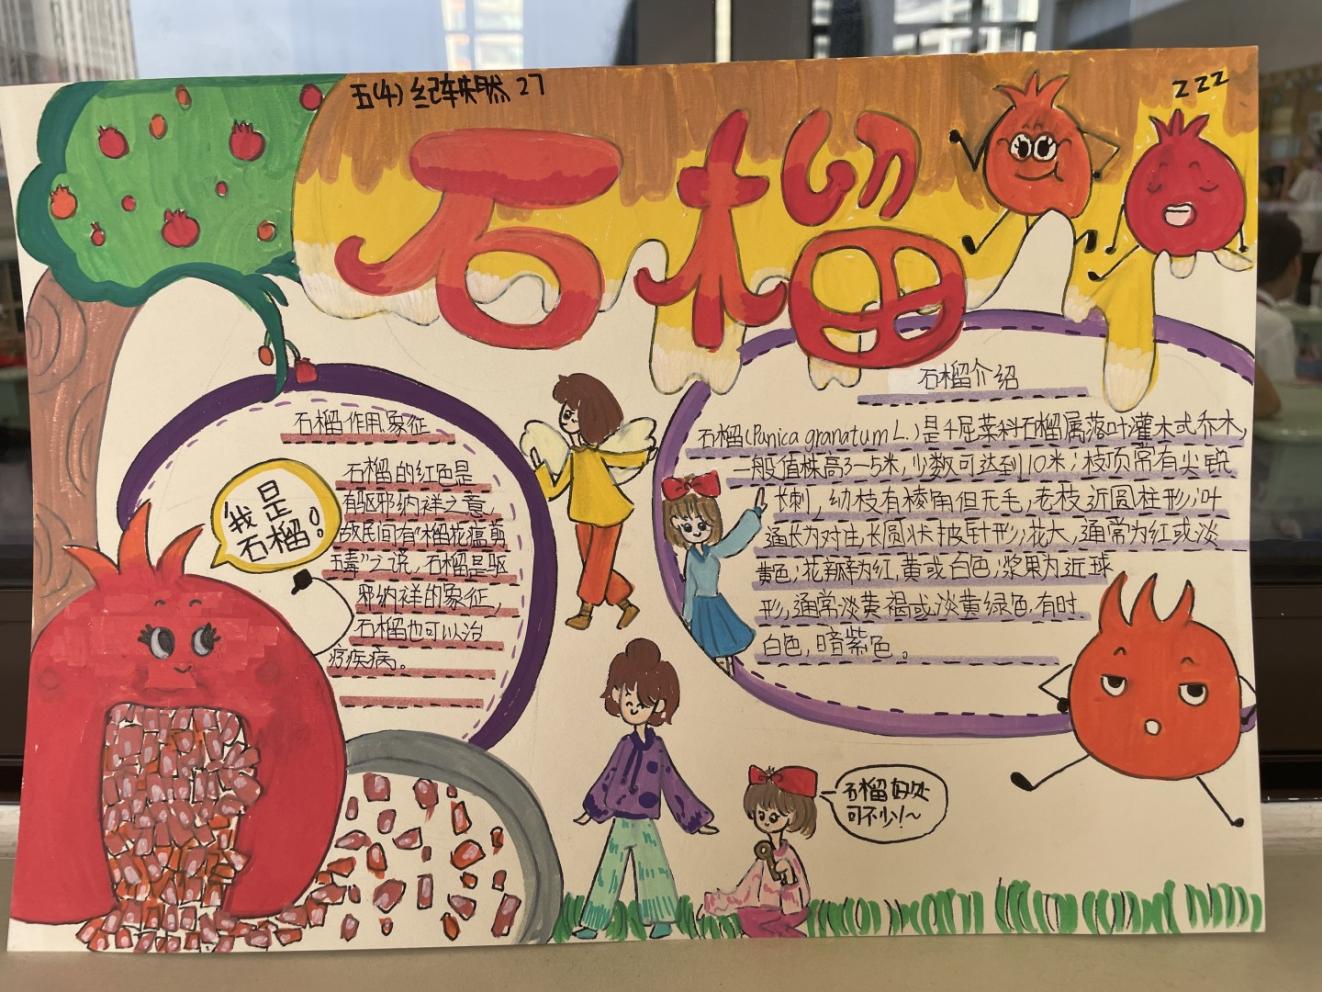 五(4) 纪轶然 27
zzz
石榴
石榴作用象征
石榴的红色是
有驱邪纳祥之意,
故民间有“榴花瘟剪
五毒”之说,石榴是驱
邪纳祥的象征,
石榴也可以治
疗疾病。
我是
石榴!
石榴介绍
石榴(Punica granatum L.)是千屈菜科石榴属落叶灌木或乔木,
一般值株高3—5米,少数可达到10米;枝顶常有尖锐
长刺,幼枝有棱角但无毛,老枝近圆柱形;叶
通长为对生,长圆状披针形;花大,通常为红或淡
黄色;花瓣为红,黄或白色;浆果为近球
形,通常淡黄褐或淡黄绿色,有时
白色,暗紫色。
石榴好处
可不少!~